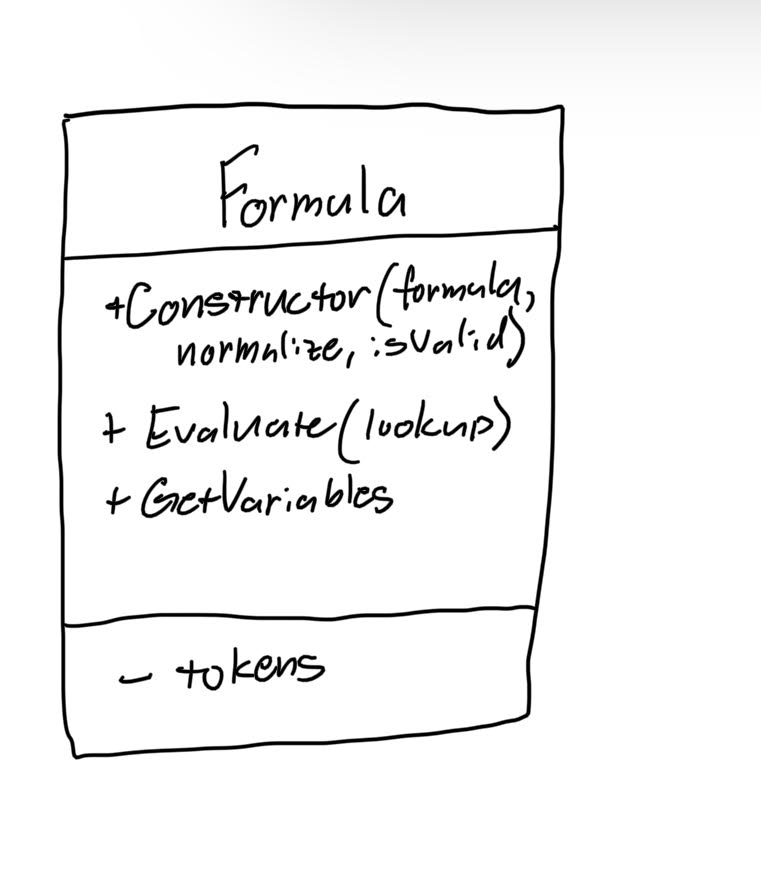 Formula
+Constructor(formula,
normalize, isValid)
+ Evaluate(lookup)
+ GetVariables
- tokens